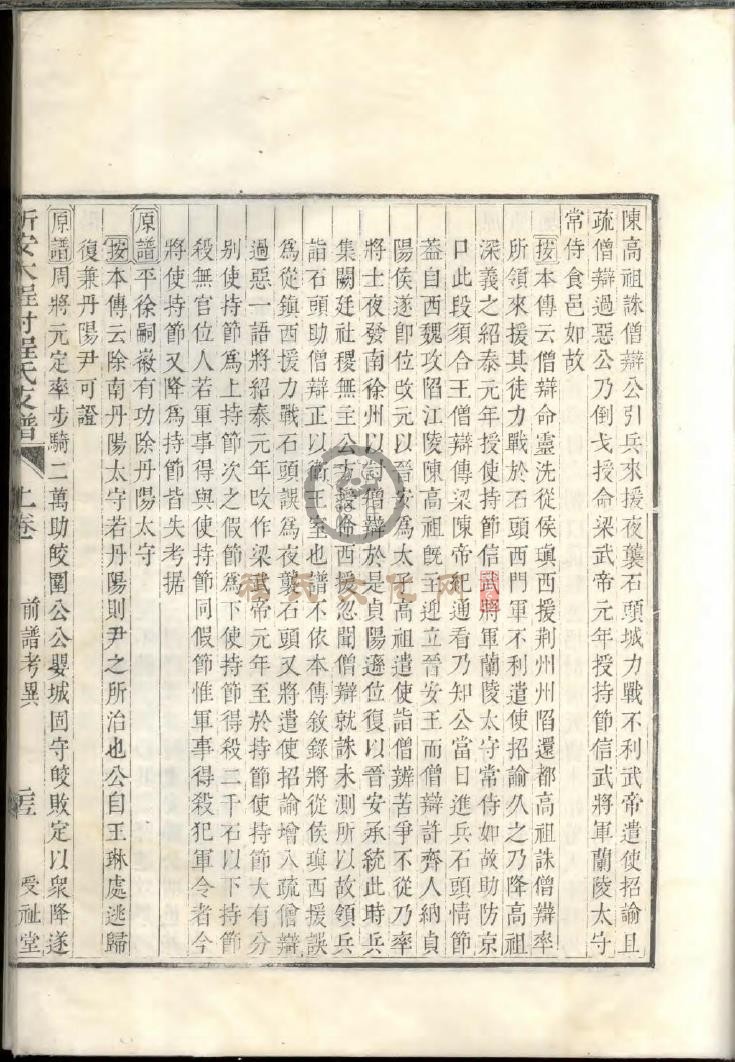 陳高祖誅僧辯公引兵來援夜襲石頭城力戰不利武帝遣使招諭且
疏僧辯過惡公乃倒戈授命梁武帝元年授持節信武將軍蘭陵太守
常侍食邑如故
按本傳云僧辯命靈洗從侯瑱西援荆州州陷還都高祖誅僧辯率
所領來援其徒力戰於石頭西門軍不利遣使招諭久之乃降高祖
深義之紹泰元年授使持節信武將軍蘭陵太守常侍如故助防京
口此段須合王僧辯傳梁陳帝紀通看乃知公當日進兵石頭情節
蓋自西魏攻陷江陵陳高祖旣王迎立晉安王而僧辯許齊人納貞
陽侯遂卽位改元以晉安爲太子高祖遣使詣僧辨苦爭不從乃率
將士夜發南徐州以討僧辯於是貞陽遜位復以晉安承統此時兵
集闕廷社稷無主公方授命西援忽聞僧辯就誅未測所以故領兵
詣石頭助僧辯正以衛王室也譜不依本傳敘錄將從侯瑱西援誤
爲從鎮西援力戰石頭誤爲夜襲石頭又將遣使招諭增入疏僧辯
過惡一語將紹泰元年改作梁武帝元年至於持節使持節大有分
别使持節爲上持節次之假節爲下使持節得殺二千石以下持節
殺無官位人若軍事得與使持節同假節惟軍事得殺犯軍令者今
將使持節又降爲持節皆失考据
原譜平徐嗣徽有功除丹陽太守
按本傳云除南丹陽太守若丹陽則尹之所治也公自王琳處逃歸
復兼丹陽尹可證
原譜周將元定率步騎二萬助皎圍公公嬰城固守皎敗定以衆降遂
新安大程村程氏支譜 上卷 前譜考異 二五 受祉堂
程氏文化网